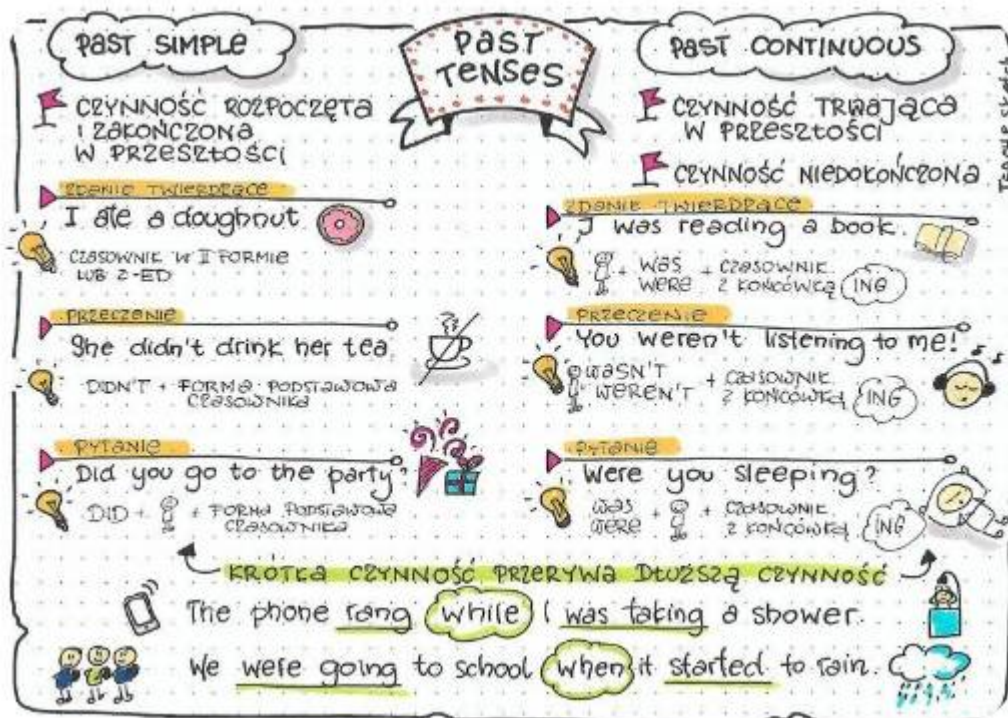 PAST SIMPLE
PAST
TENSES
PAST CONTINUOUS
CZYNNOŚĆ ROZPOCZĘTA
I ZAKOŃCZONA
W PRZESZŁOŚCI
ZDANIE TWIERDZĄCE
I ate a doughnut
CZASOWNIK W II FORMIE
LUB Z -ED
PRZECZENIE
She didn't drink her tea
DIDN'T + FORMA PODSTAWOWA
CZASOWNIKA
PYTANIE
Did you go to the party?
DID + + FORMA PODSTAWOWA
CZASOWNIKA
CZYNNOŚĆ TRWAJĄCA
W PRZESZŁOŚCI
CZYNNOŚĆ NIEDOKOŃCZONA
ZDANIE TWIERDZĄCE
I was reading a book.
+ WAS + CZASOWNIK
WERE Z KOŃCÓWKĄ ING
PRZECZENIE
You weren't listening to me!
WASN'T + CZASOWNIK
WEREN'T Z KOŃCÓWKĄ ING
PYTANIE
Were you sleeping?
WAS + + CZASOWNIK
WERE Z KOŃCÓWKĄ ING
KRÓTKA CZYNNOŚĆ PRZERYWA DŁUŻSZĄ CZYNNOŚĆ
The phone rang while I was taking a shower.
We were going to school when it started to rain.